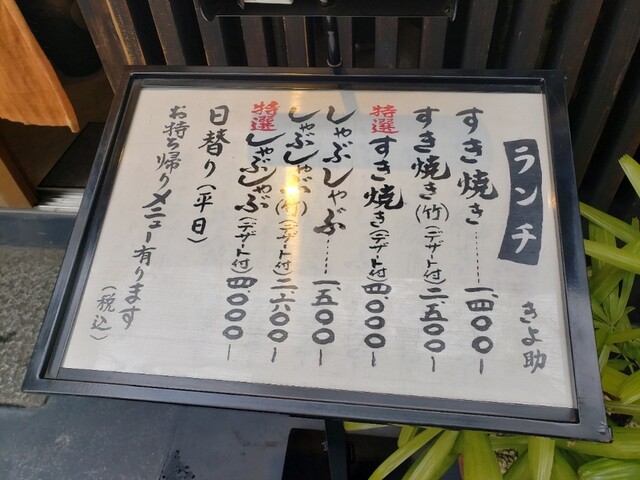 ランチ
きよ助
すき焼き……一、四〇〇ー
すき焼き(竹)(デザート付)二、五〇〇ー
特選すき焼き(デザート付)四、〇〇〇ー
しゃぶしゃぶ……一、五〇〇ー
しゃぶしゃぶ(竹)(デザート付)二、六〇〇ー
特選しゃぶしゃぶ(デザート付)四、〇〇〇ー
日替り(平日)
お持ち帰りメニュー有ります
(税込)